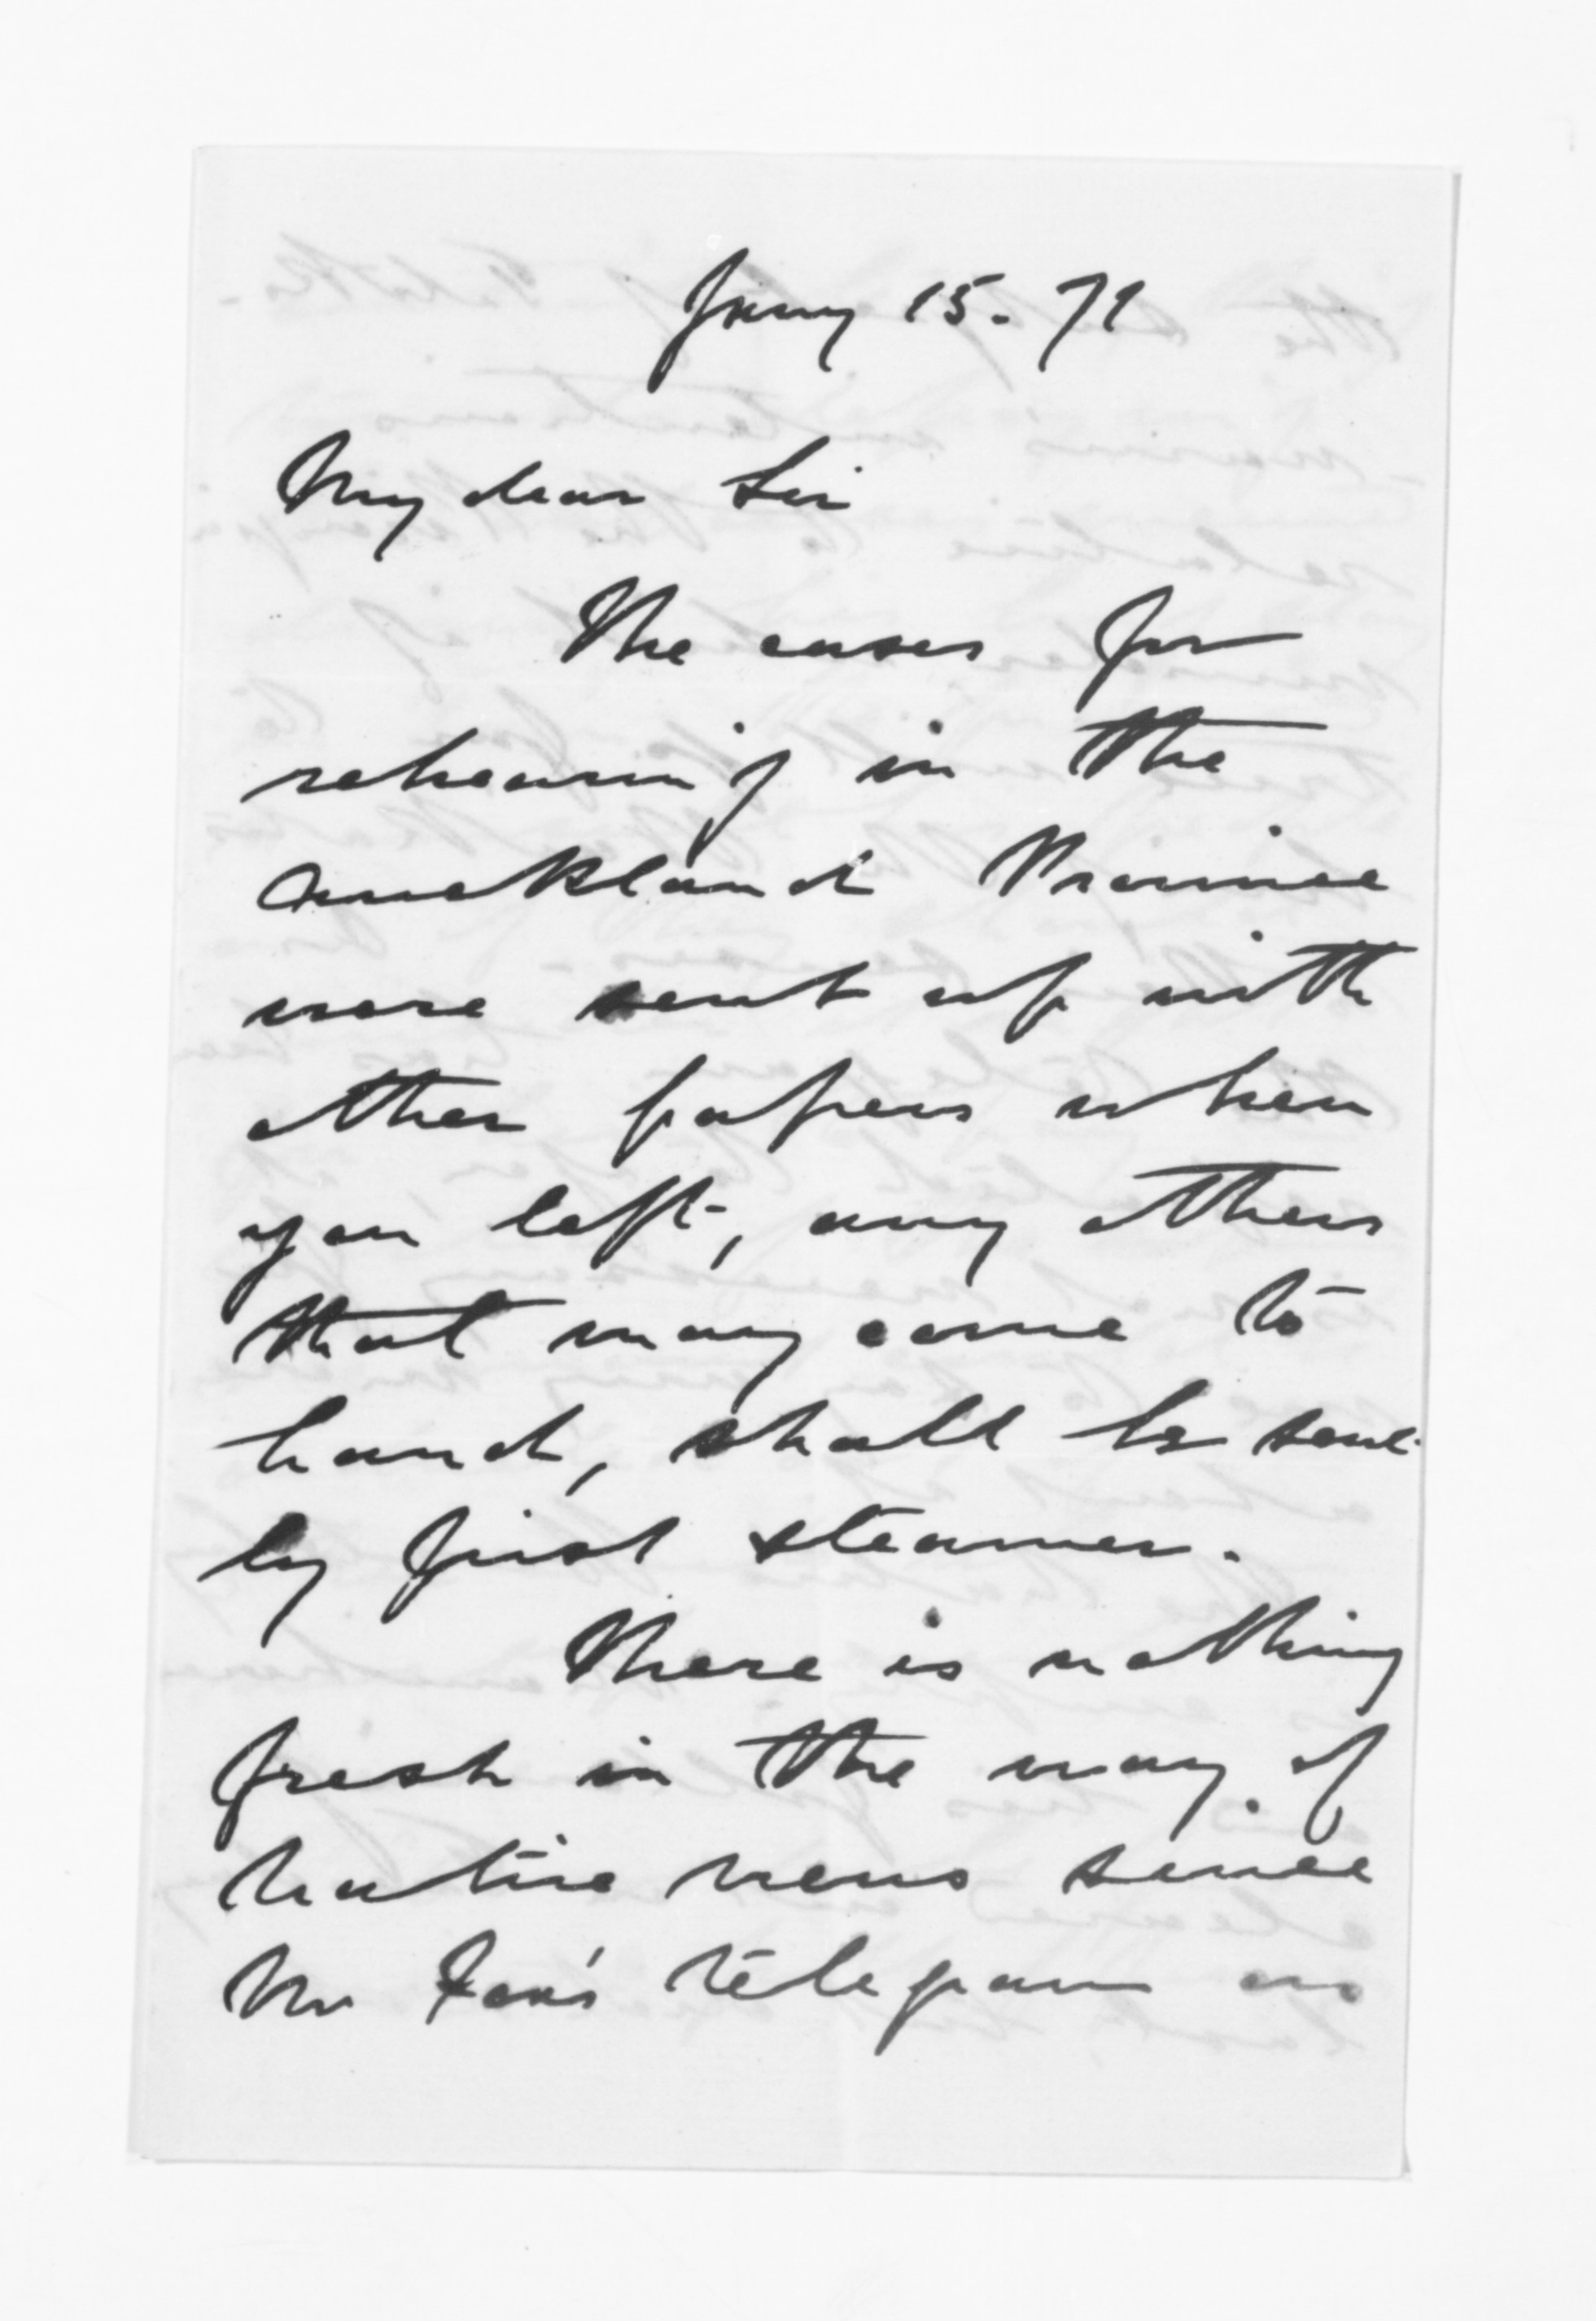 Jany 15. 71
My dear Sir
The cases for
rehearing in the
Auckland Province
were sent up with
other papers when
you left, any others
that may come to
hand, shall be sent
by first steamer.
There is nothing
fresh in the way of
native news since
Mr Fox's telegram on